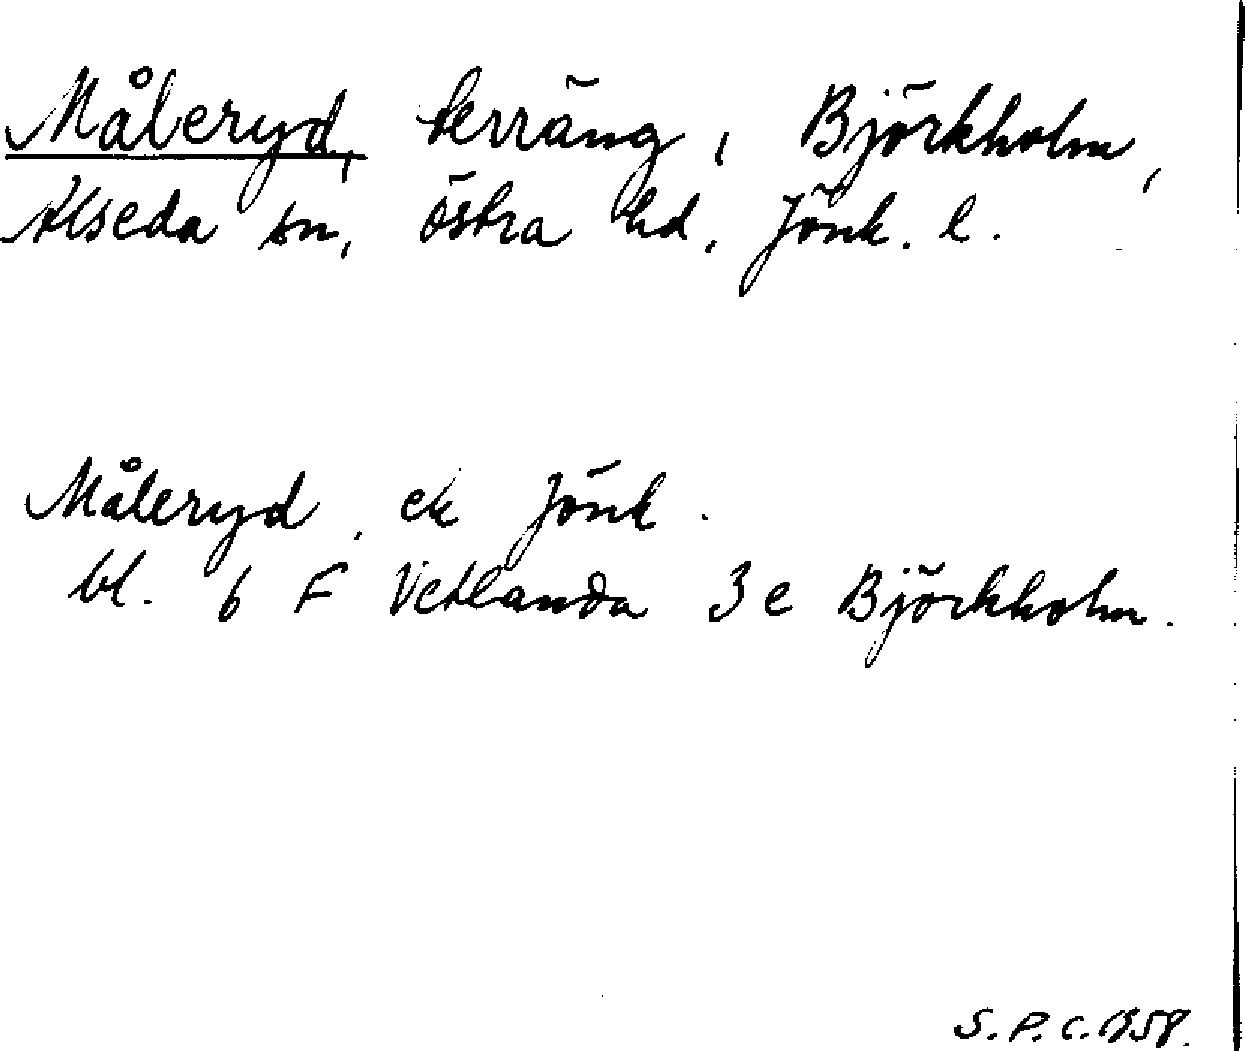 Måleryd, terräng, Björkholm,
Alseda sn, Östra hd, Jönk. l.
Måleryd, ek Jönk.
bl. 6 F Vetlanda 3 e Björkholm.
S.P.C. 1958.